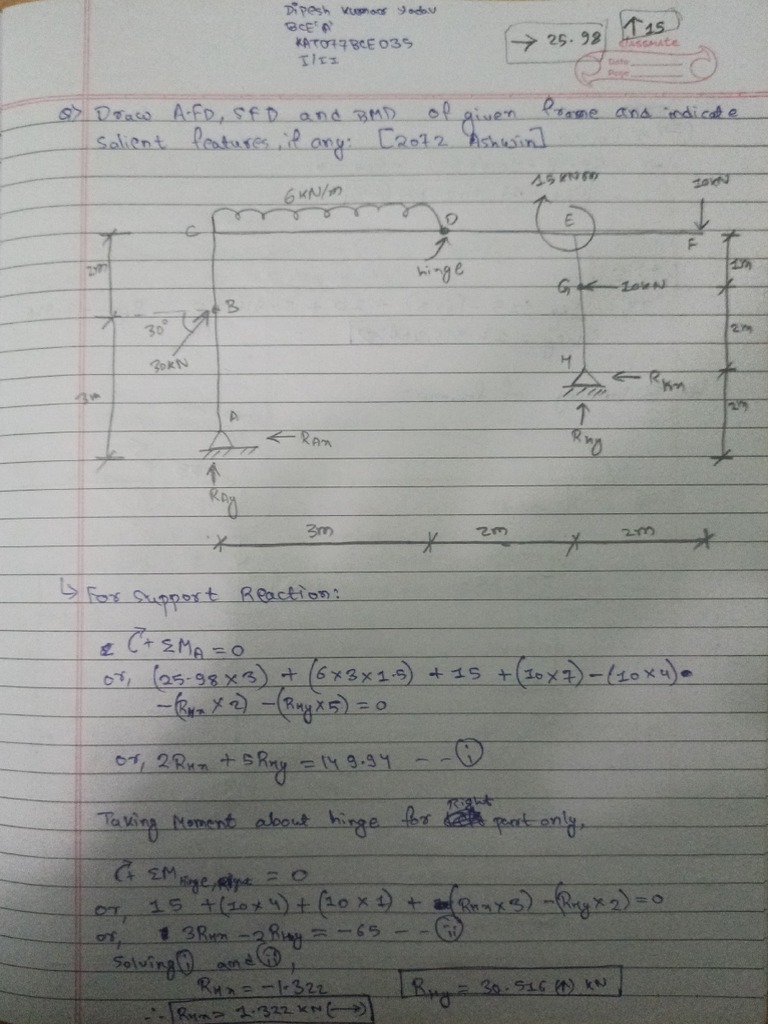 Dipesh Kumar Yadav
BCE 'A'
KAT077BCE035
I/II
→ 25.98
↑ 15
CLASSMATE
Date
Page
Q> Draw AFD, SFD and BMD of given frame and indicate
salient features, if any: [2072 Ashwin]
15 KNm
10KN
6KN/m
C
D
E
F
2m
hinge
1m
G
10KN
B
30°
2m
30KN
H
R_Hx
3m
2m
A
R_Ax
R_Hy
R_Ay
3m
2m
2m
↳ For Support Reaction:
↻+ ΣM_A = 0
or, (25.98×3) + (6×3×1.5) + 15 + (10×7) - (10×4)
- (R_Hx×2) - (R_Hy×5) = 0
or, 2R_Hx + 5R_Hy = 149.94 -- (i)
Taking Moment about hinge for Right part only,
↻+ ΣM_hinge, right = 0
or, 15 + (10×4) + (10×1) + (R_Hx×3) - (R_Hy×2) = 0
or, 3R_Hx - 2R_Hy = -65 -- (ii)
Solving (i) and (ii),
R_Hx = -1.322
R_Hy = 30.516 (↑) KN
∴ R_Hx = 1.322 KN (→)